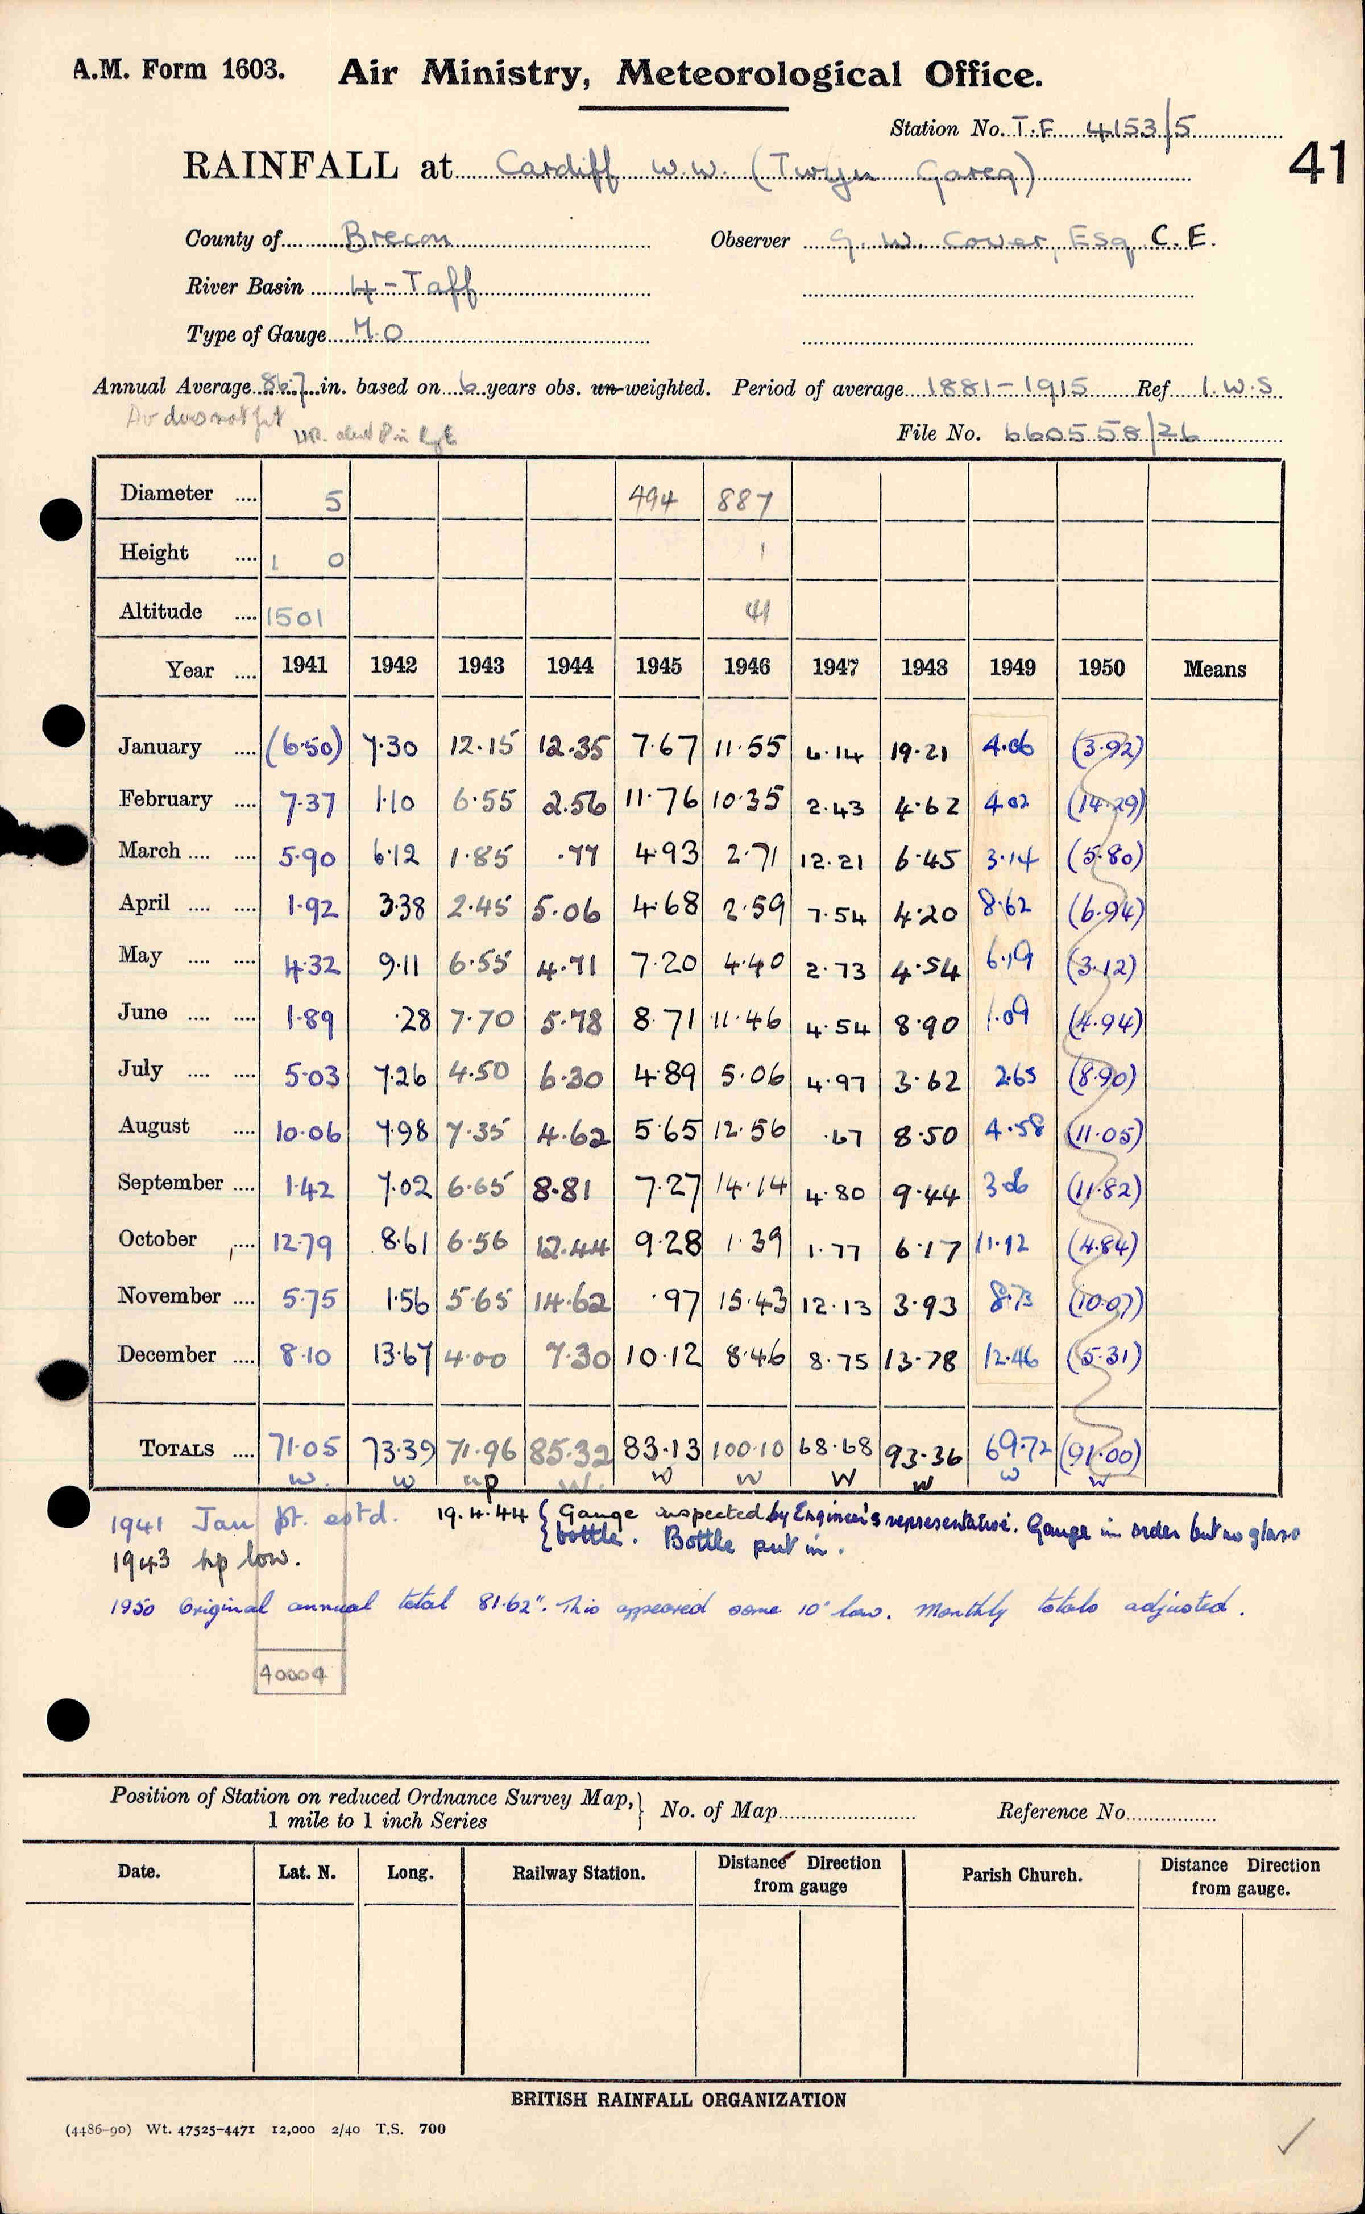 A.M. Form 1603. Air Ministry, Meteorological Office.
Station No. T.F 4153/5
41
RAINFALL at Cardiff W.W. (Twyn Gareg)
County of Brecon Observer G. W. Cover, Esq C.E.
River Basin 4 - Taff
Type of Gauge M.O
Annual Average 86.7 in. based on 6 years obs. un-weighted. Period of average 1881-1915 Ref I.W.S
Av does not fit
File No. 660558/26
Diameter .... 5 494 887
Height .... 1 0 1
Altitude .... 1501 41
Year .... 1941 1942 1943 1944 1945 1946 1947 1948 1949 1950 Means
January .... (6.50) 7.30 12.15 12.35 7.67 11.55 6.14 19.21 4.06 (3.92)
February .... 7.37 1.10 6.55 2.56 11.76 10.35 2.43 4.62 4.02 (14.29)
March .... .... 5.90 6.12 1.85 .77 4.93 2.71 12.21 6.45 3.14 (5.80)
April .... .... 1.92 3.38 2.45 5.06 4.68 2.59 7.54 4.20 8.62 (6.94)
May .... .... 4.32 9.11 6.55 4.71 7.20 4.40 2.73 4.54 6.19 (3.12)
June .... .... 1.89 .28 7.70 5.78 8.71 11.46 4.54 8.90 1.09 (4.94)
July .... .... 5.03 7.26 4.50 6.30 4.89 5.06 4.97 3.62 2.65 (8.90)
August .... 10.06 7.98 7.35 4.62 5.65 12.56 .67 8.50 4.58 (11.05)
September .... 1.42 7.02 6.65 8.81 7.27 14.14 4.80 9.44 3.06 (11.82)
October .... 12.79 8.61 6.56 12.44 9.28 1.39 1.77 6.17 11.12 (4.84)
November .... 5.75 1.56 5.65 14.62 .97 15.43 12.13 3.93 8.73 (10.07)
December .... 8.10 13.67 4.00 7.30 10.12 8.46 8.75 13.78 12.46 (5.31)
TOTALS .... 71.05 73.39 71.96 85.32 83.13 100.10 68.68 93.36 69.72 (91.00)
w. w np w. w w w w w w
1941 Jan pt. estd. 19.4.44 { Gauge inspected by Engineer's representative. Gauge in order but no glass
1943 np low. { bottle. Bottle put in.
1950 Original annual total 81.62". This appeared some 10" low. Monthly totals adjusted.
40004
Position of Station on reduced Ordnance Survey Map, } No. of Map Reference No.
1 mile to 1 inch Series
Date. Lat. N. Long. Railway Station. Distance Direction from gauge Parish Church. Distance Direction from gauge.
BRITISH RAINFALL ORGANIZATION
(4486-90) Wt. 47525-4471 12,000 2/40 T.S. 700